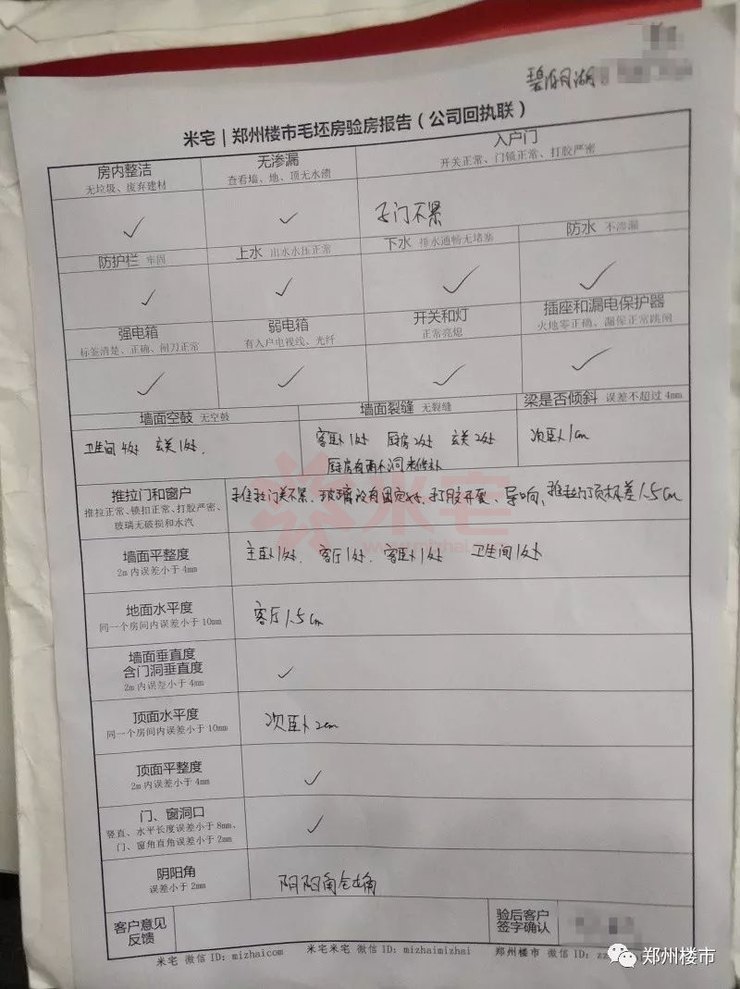 碧湖
米宅｜郑州楼市毛坯房验房报告（公司回执联）
房内整洁
无垃圾、废弃建材
无渗漏
查看墙、地、顶无水渍
入户门
开关正常、门锁正常、打胶严密
✓
✓
子门不紧
防护栏 牢固
上水 出水水压正常
下水 排水通畅无堵塞
防水 不渗漏
✓
✓
✓
✓
强电箱
标签清楚、正确、闸刀正常
弱电箱
有入户电视线、光纤
开关和灯
正常亮熄
插座和漏电保护器
火地零正确、漏保正常跳闸
✓
✓
✓
✓
墙面空鼓 无空鼓
墙面裂缝 无裂缝
梁是否倾斜 误差不超过4mm
卫生间4处 玄关1处.
客卧1处 厨房2处 玄关2处
厨房有两个洞未修补
次卧1cm
推拉门和窗户
推拉正常、锁扣正常、打胶严密、
玻璃无破损和水汽
推拉门关不紧、玻璃没有固定好、打胶开裂、异响、推拉门顶框差1.5cm
墙面平整度
2m内误差小于4mm
主卧1处、客厅1处、客卧1处 卫生间1处
地面水平度
同一个房间内误差小于10mm
客厅1.5cm
墙面垂直度
含门洞垂直度
2m内误差小于4mm
✓
顶面水平度
同一个房间内误差小于10mm
次卧2cm
顶面平整度
2m内误差小于4mm
✓
门、窗洞口
竖直、水平长度误差小于8mm、
门、窗角直角误差小于2mm
✓
阴阳角
误差小于2mm
阴阳角全
客户意见
反馈
验后客户
签字确认
米宅 微信 ID: mizhaicom 米宅米宅 微信 ID: mizhaimizhai 郑州楼市 微信 ID: zz
米宅
www.mizhai.com
郑州楼市